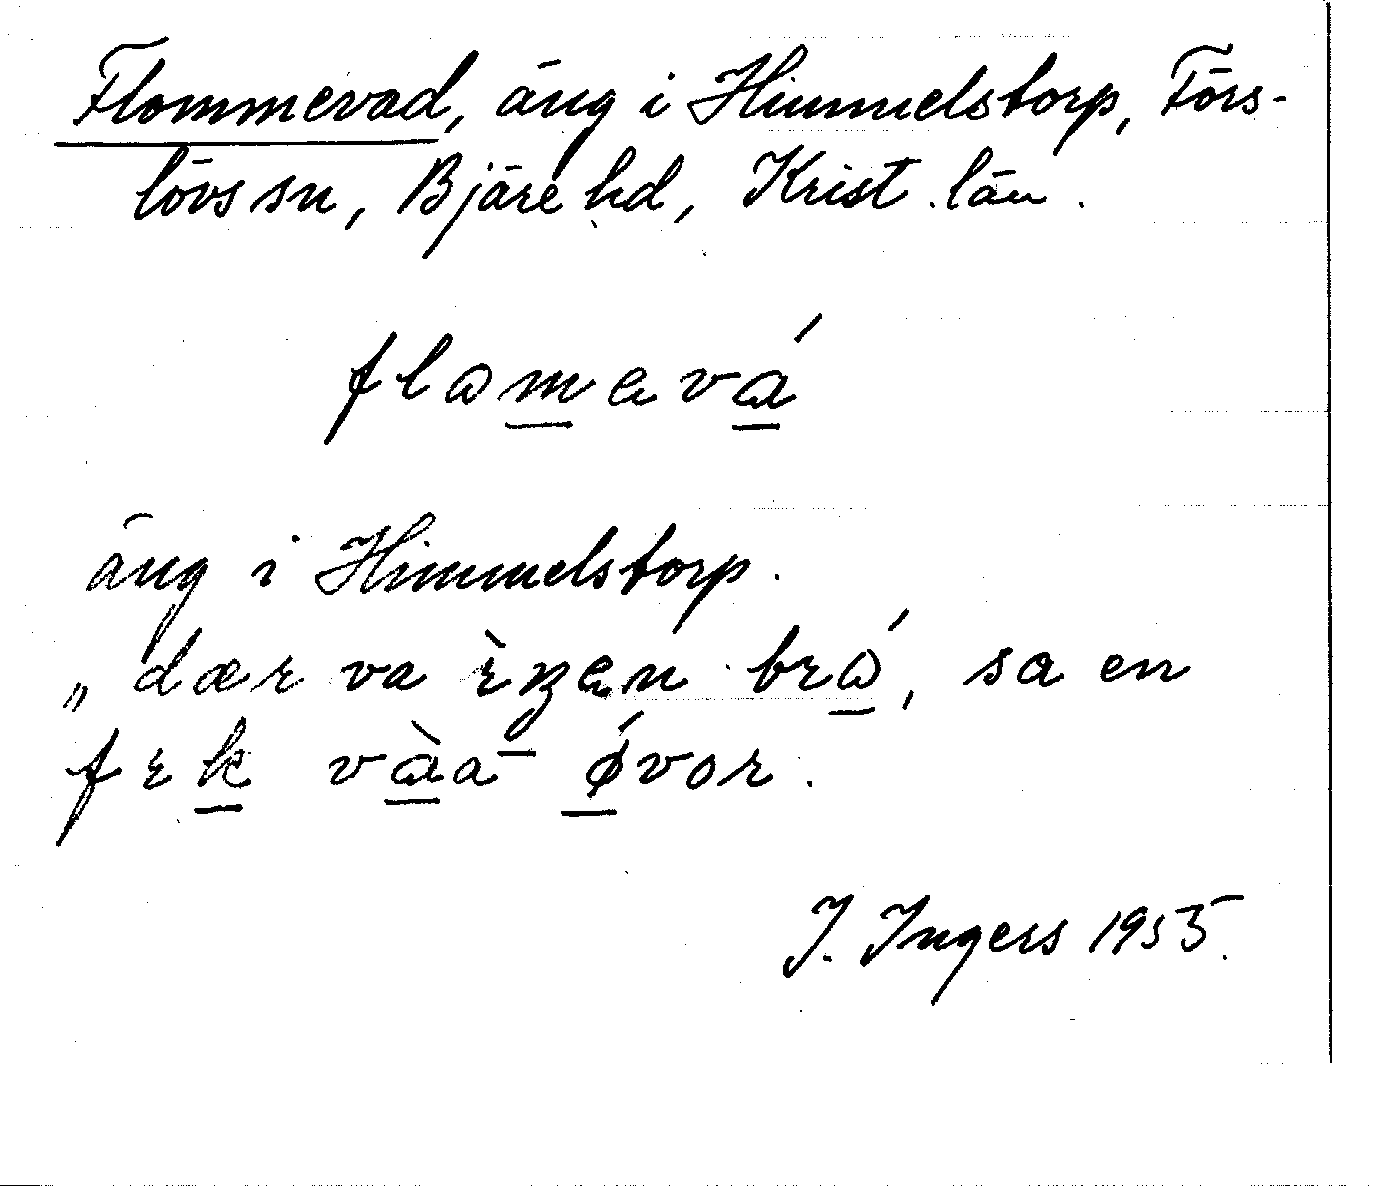 Flommevad, äng i Himmelstorp, Förs-
lövs sn, Bjäre hd, Krist. län.
flɷmɐvá
äng i Himmelstorp.
„dær va ìŋɐn brɷ́, sa en
fɪk vàa øvor.
I. Ingers 1955.